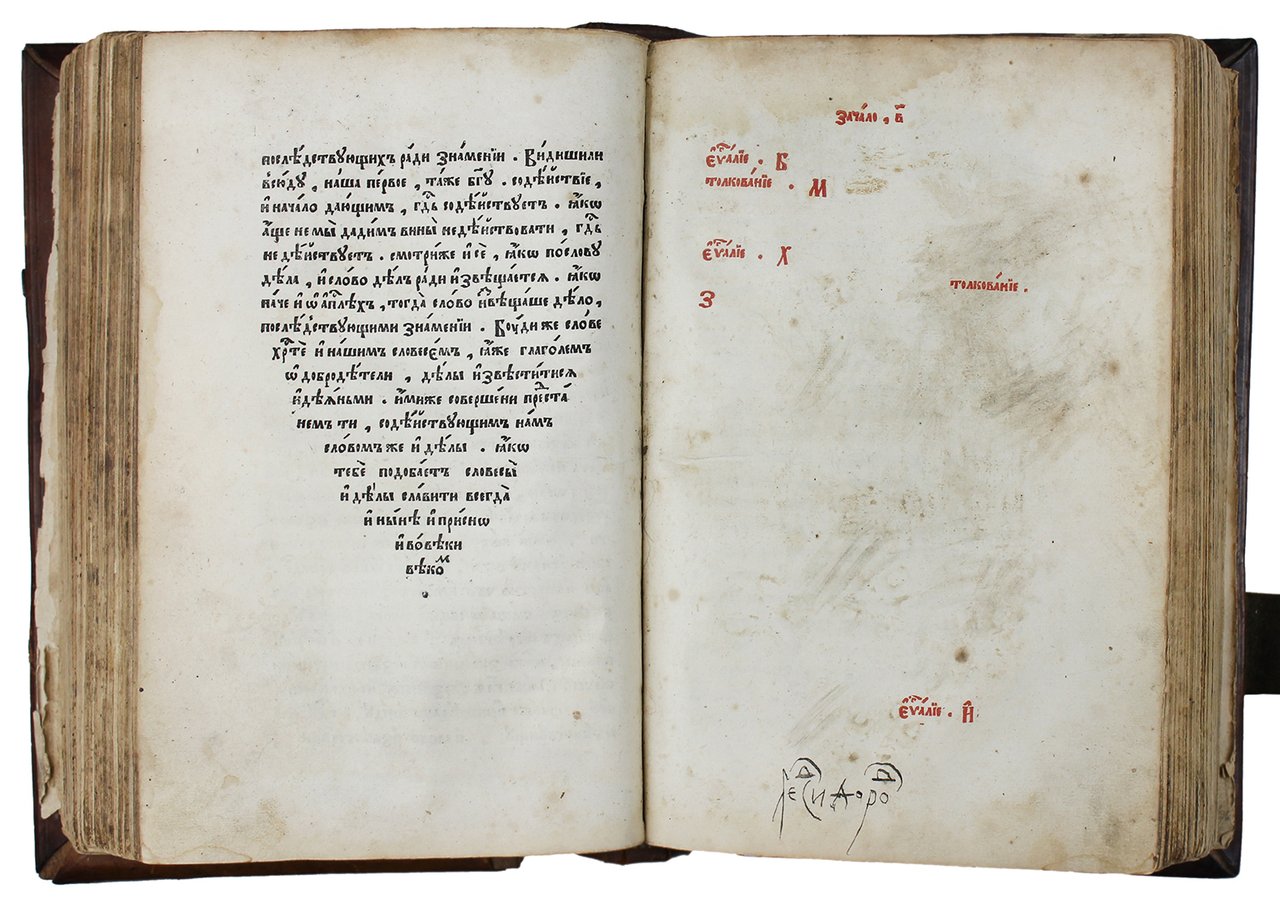 послѣ́дствующихъ ра́ди зна́менїи . Ви́дишили
всю́ду , на́ша пе́рвое , та́же бг҃у . содѣ́йствїе ,
и҆ нача́ло дающимъ , гдⷭ҇ь содѣ́йствуетъ . ꙗ҆́кѡ
а҆́ще не мы̀ дади́мъ вины̀ недѣ́йствовати , гдⷭ҇ь
не дѣ́йствуетъ . смотри́же и҆ сѐ , ꙗ҆́кѡ по сло́ву
дѣ́ла , и҆ сло́во дѣ́лъ ра́ди и҆звѣща́ется . ꙗ҆́кѡ
па́че и҆ ѡ҆ а҆пⷭ҇лѣхъ , тогда̀ сло́во и҆звѣща́ше дѣ́ло ,
послѣ́дствующими зна́менїи . Бꙋ́ди же сло́ве
хрⷭ҇тѐ и҆ на́шимъ словесє́мъ , ꙗ҆́же глаго́лемъ
ѡ҆ добродѣ́тели , дѣ́лы и҆звѣсти́тися
и҆ дѣѧ́ньми . и҆́миже соверше́ни предста́
немъ ти , содѣ́йствующимъ на́мъ
сло́вомъ же и҆ дѣ́лы . ꙗ҆́кѡ
тебѐ подоба́етъ словесы̀
и҆ дѣ́лы сла́вити всегда̀
и҆ ны́нѣ и҆ при́снѡ
и҆ во́ вѣки
вѣкоⷨ
зача́ло , в҃
є҆ѵⷢ҇а́лїе . Б
толкова́нїе . М
є҆ѵⷢ҇а́лїе . Х
толкова́нїе .
З
є҆ѵⷢ҇а́лїе . И҆